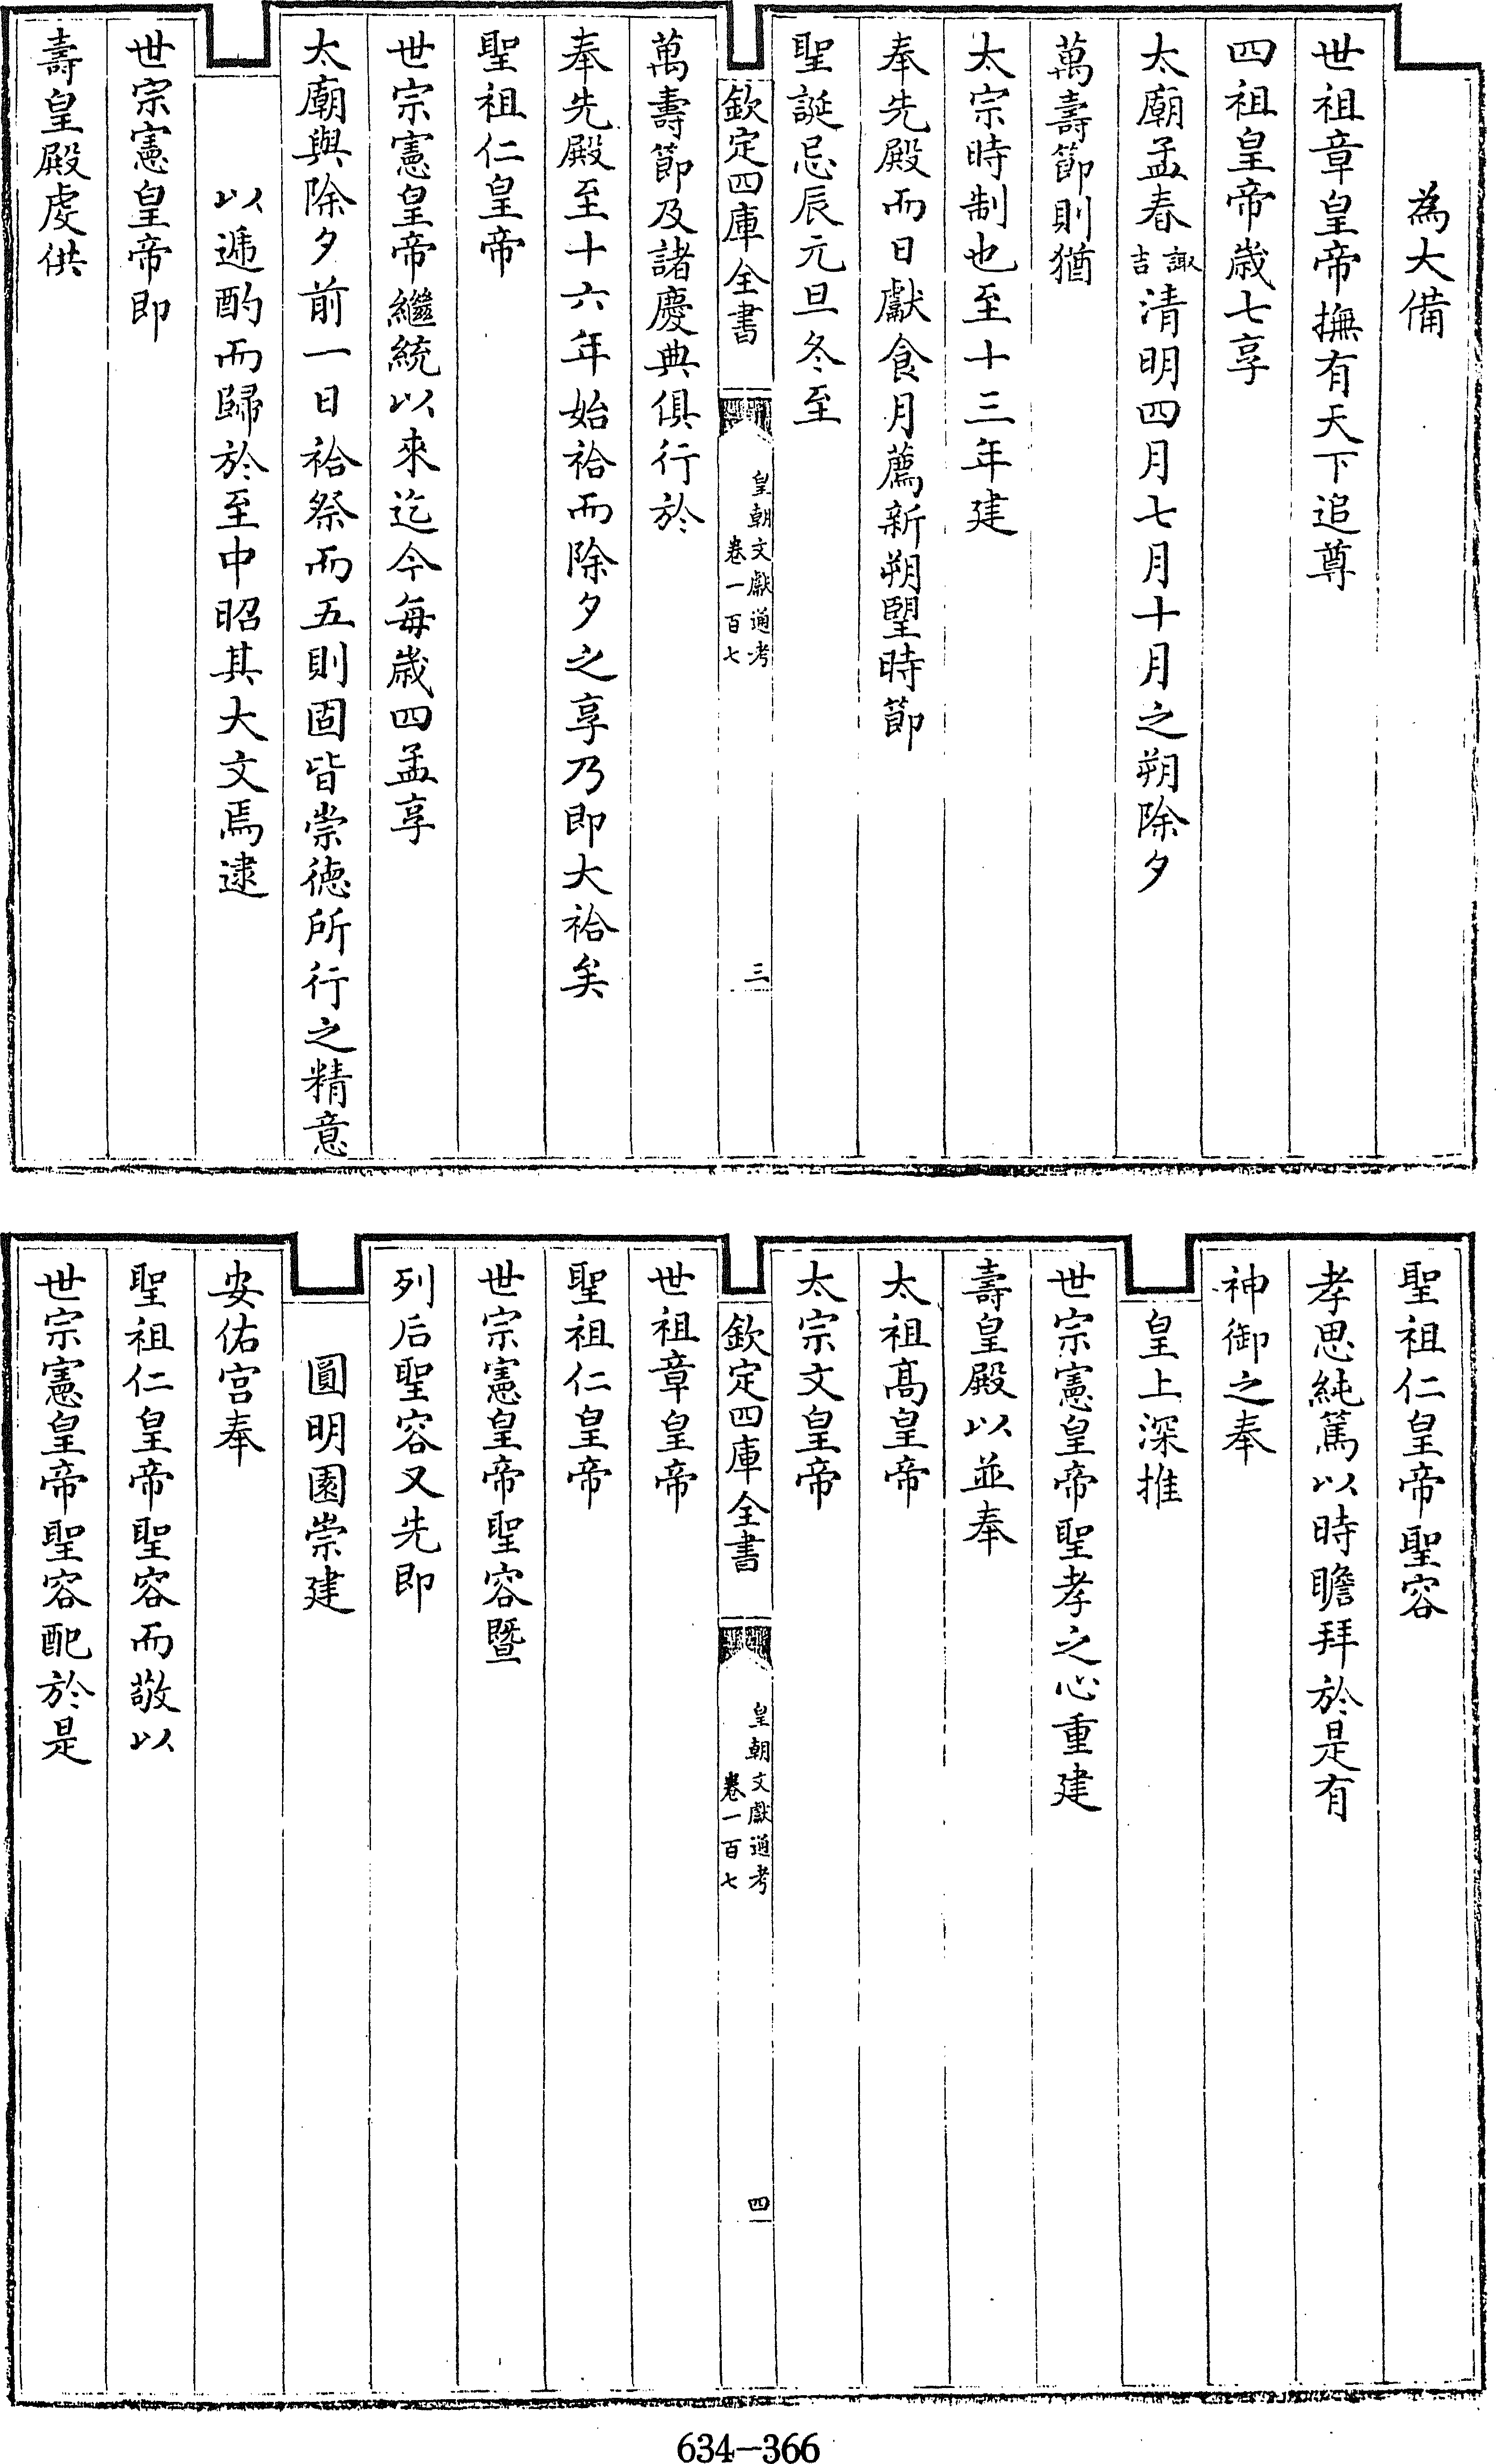 為大備
世祖章皇帝撫有天下追尊
四祖皇帝歲七享
太廟孟春諏吉清明四月七月十月之朔除夕
萬壽節則猶
太宗時制也至十三年建
奉先殿而日獻食月薦新朔望時節
聖誕忌辰元旦冬至
欽定四庫全書
皇朝文獻通考
卷一百七
三
萬壽節及諸慶典俱行於
奉先殿至十六年始祫而除夕之享乃即大祫矣
聖祖仁皇帝
世宗憲皇帝繼統以來迄今每歲四孟享
太廟與除夕前一日祫祭而五則固皆崇德所行之精意
以遞酌而歸於至中昭其大文焉逮
世宗憲皇帝即
壽皇殿虔供
聖祖仁皇帝聖容
孝思純篤以時瞻拜於是有
神御之奉
皇上深推
世宗憲皇帝聖孝之心重建
壽皇殿以並奉
太祖髙皇帝
太宗文皇帝
欽定四庫全書
皇朝文獻通考
卷一百七
四
世祖章皇帝
聖祖仁皇帝
世宗憲皇帝聖容暨
列后聖容又先即
圓明園崇建
安佑宮奉
聖祖仁皇帝聖容而敬以
世宗憲皇帝聖容配於是
634-366